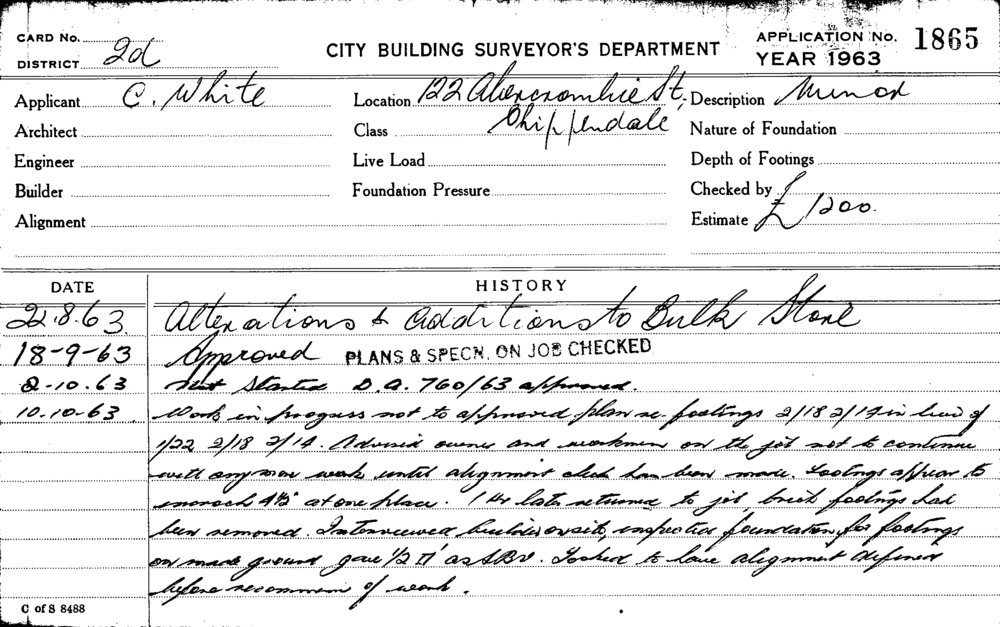 CARD No.
DISTRICT 2d
CITY BUILDING SURVEYOR'S DEPARTMENT
APPLICATION No. 1865
YEAR 1963
Applicant C. White
Location 122 Abercrombie St, Chippendale
Description Minor
Architect
Class
Nature of Foundation
Engineer
Live Load
Depth of Footings
Builder
Foundation Pressure
Checked by
Alignment
Estimate £1200.
DATE HISTORY
22.8.63 Alterations & additions to Bulk Store
18-9-63 Approved PLANS & SPECN. ON JOB CHECKED
2-10.63 Not Started D.A. 760/63 approved.
10.10-63 Work in progress not to approved plan re. footings 2/18 2/14 in lieu of
1/22 2/18 2/14. Advised owner and workmen on the job not to continue
with any more work until alignment check has been made. Footings appear to
encroach 4½" at one place. 1 Hr later returned to job, brick footings had
been removed. Interviewed builder on site, inspected foundation for footings
on made ground gave ½ as SBV. Asked to have alignment defined
before of work.
C of S 8488